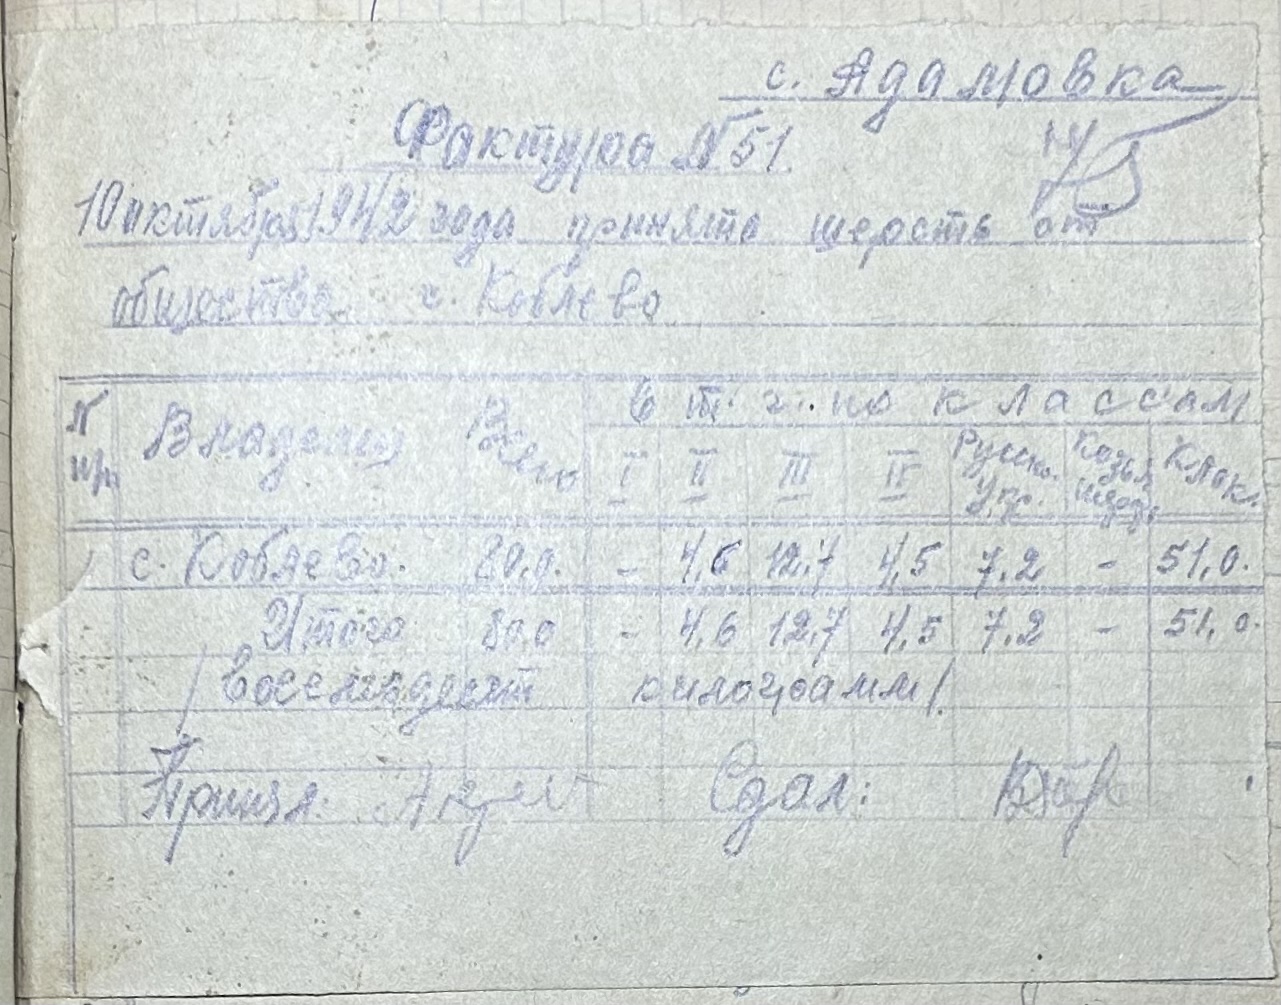 с. Адамовка
Фактура № 51
10 октября 1942 года принято шерсть от
общества с. Кобаево
№ п/п Владелец Всего в т. ч. по классам
I II III IV Русск. Упр. Козья Кл.
1 с. Кобаево. 80,0. - 4,6 12,7 4,5 7,2 - 51,0.
Итого 80,0 - 4,6 12,7 4,5 7,2 - 51,0.
/восемьдесят килограмм/.
Принял: Сдал: